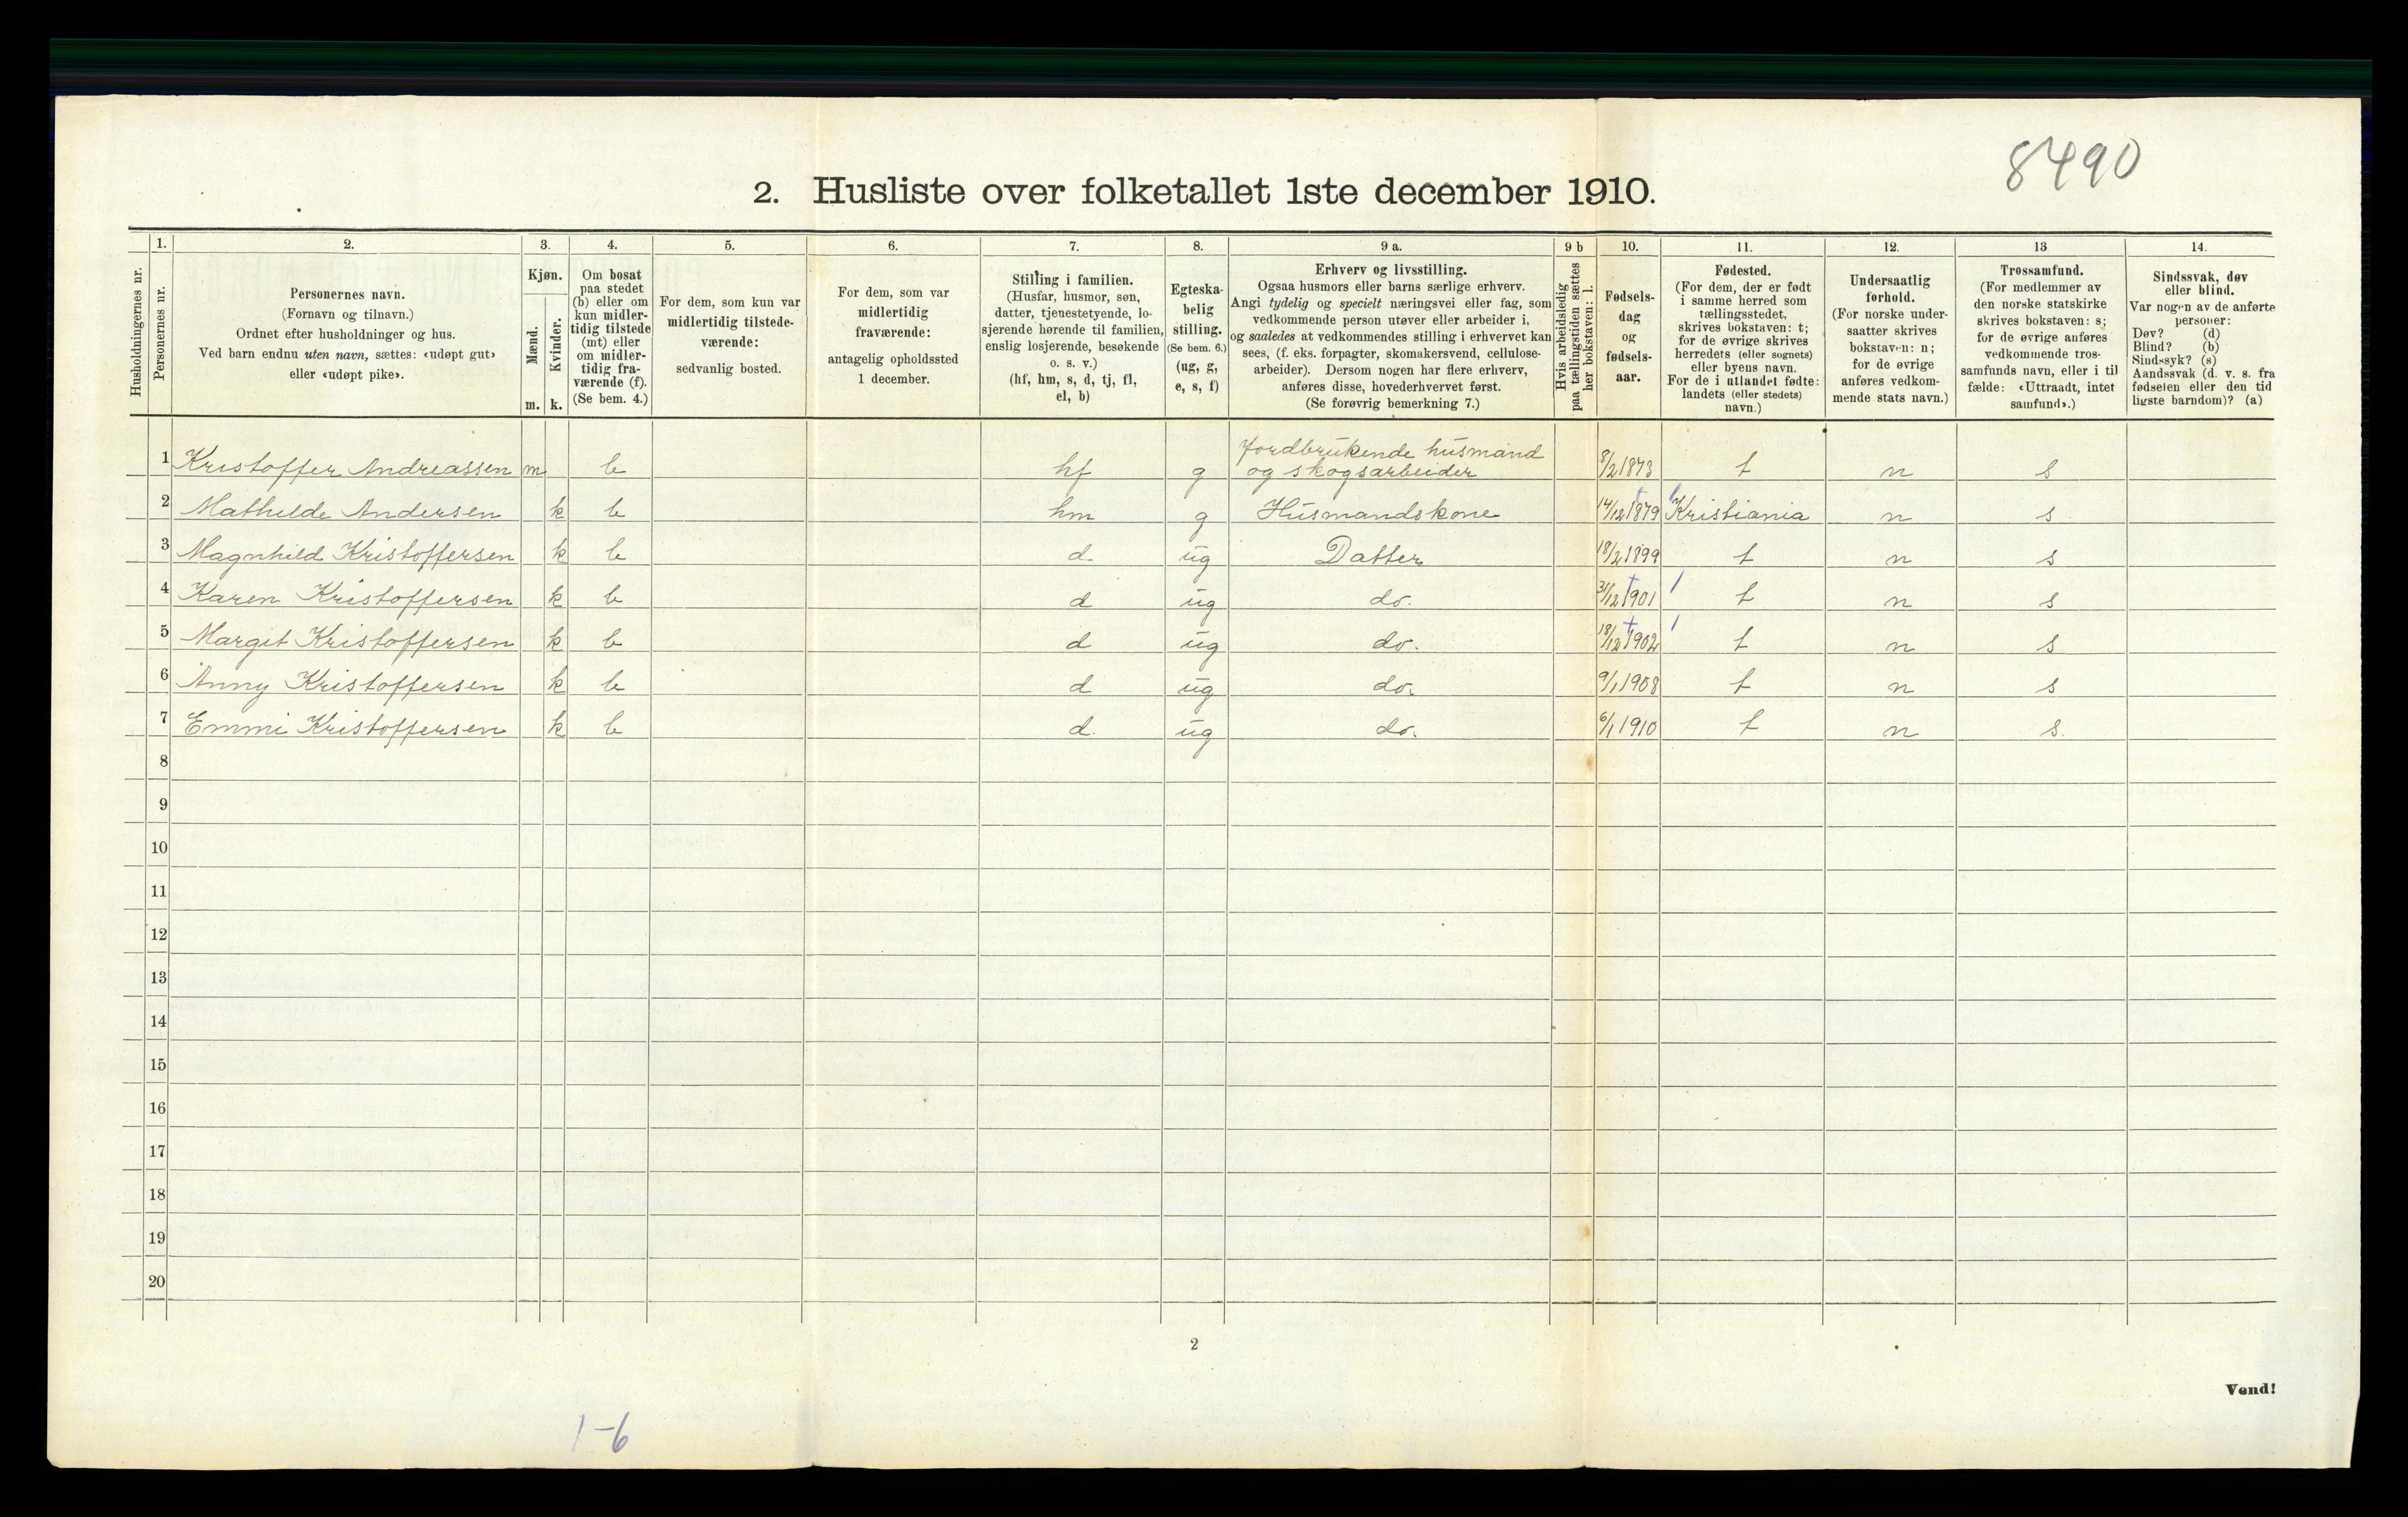 8490
2. Husliste over folketallet 1ste december 1910.
Husholdningernes nr.
1.
Personernes nr.
2.
Personernes navn.
(Fornavn og tilnavn.)
Ordnet efter husholdninger og hus.
Ved barn endnu uten navn, sættes: «udøpt gut»
eller «udøpt pike».
3.
Kjøn.
Mænd.
Kvinder.
m. k.
4.
Om bosat
paa stedet
(b) eller om
kun midler-
tidig tilstede
(mt) eller
om midler-
tidig fra-
værende (f).
(Se bem. 4.)
5.
For dem, som kun var
midlertidig tilstede-
værende:
sedvanlig bosted.
6.
For dem, som var
midlertidig
fraværende:
antagelig opholdssted
1 december.
7.
Stilling i familien.
(Husfar, husmor, søn,
datter, tjenestetyende, lo-
sjerende hørende til familien,
enslig losjerende, besøkende
o. s. v.)
(hf, hm, s, d, tj, fl,
el, b)
8.
Egteska-
belig
stilling.
(Se bem. 6.)
(ug, g,
e, s, f)
9 a.
Erhverv og livsstilling.
Ogsaa husmors eller barns særlige erhverv.
Angi tydelig og specielt næringsvei eller fag, som
vedkommende person utøver eller arbeider i,
og saaledes at vedkommendes stilling i erhvervet kan
sees, (f. eks. forpagter, skomakersvend, cellulose-
arbeider). Dersom nogen har flere erhverv,
anføres disse, hovederhvervet først.
(Se forøvrig bemerkning 7.)
9 b
Hvis arbeidsledig
paa tællingstiden sættes
her bokstaven: l.
10.
Fødsels-
dag
og
fødsels-
aar.
11.
Fødested.
(For dem, der er født
i samme herred som
tællingsstedet,
skrives bokstaven: t;
for de øvrige skrives
herredets (eller sognets)
eller byens navn.
For de i utlandet fødte:
landets (eller stedets)
navn.)
12.
Undersaatlig
forhold.
(For norske under-
saatter skrives
bokstaven: n;
for de øvrige
anføres vedkom-
mende stats navn.)
13
Trossamfund.
(For medlemmer av
den norske statskirke
skrives bokstaven: s;
for de øvrige anføres
vedkommende tros-
samfunds navn, eller i til
fælde: «Uttraadt, intet
samfund».)
14.
Sindssvak, døv
eller blind.
Var nogen av de anførte
personer:
Døv? (d)
Blind? (b)
Sindssyk? (s)
Aandssvak (d. v. s. fra
fødselen eller den tid
ligste barndom)? (a)
1 Kristoffer Andreassen m b hf g Jordbrukende husmand
og skogsarbeider 8/2 1873 t n s
2 Mathilde Andersen k b hm g Husmandskone 14/12 1879 Kristiania n s
3 Magnhild Kristoffersen k b d. ug Datter 18/2 1899 t n s
4 Karen Kristoffersen k b d ug do. 31/12 1901 t n s
5 Margit Kristoffersen k b d ug do. 18/12 1902 t n s
6 Anny Kristoffersen k b d ug do. 9/1 1908 t n s
7 Emmi Kristoffersen k b d. ug do. 6/1 1910 t n s.
8
9
10
11
12
13
14
15
16
17
18
19
20
2
Vend!
1-6